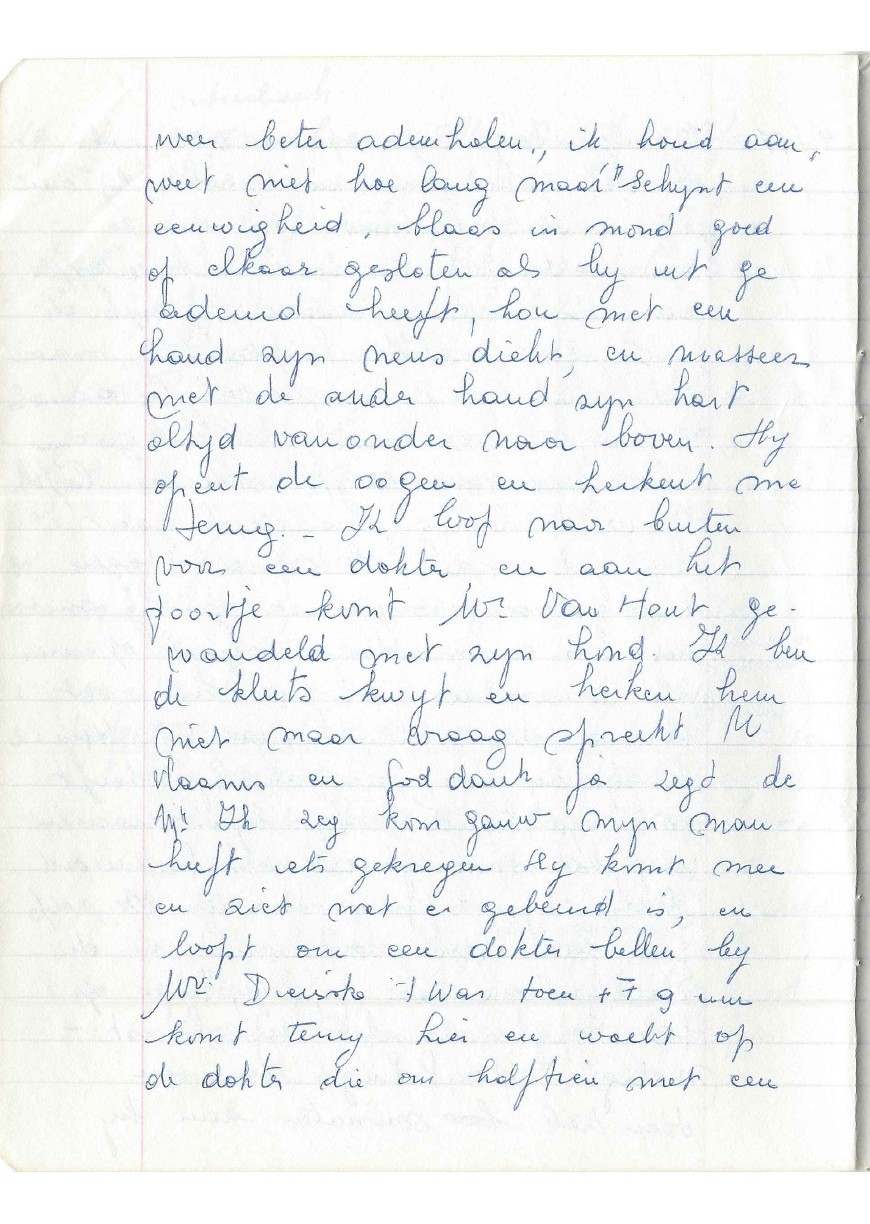 weer beter ademholen., ik houd aan,
weet niet hoe lang maar "schynt een
eeuwigheid, blaas in mond goed
op elkaar gesloten als hy uit ge
ademd heeft, hou met een
hand zyn neus dicht, en masseer
met de ander hand zyn hart
altyd van onder naar boven. Hy
opent de oogen en herkent me
terug. _ Ik loop naar buiten
voor een dokter, en aan het
poortje komt Mr. Van Hout ge-
wandeld met zyn hond. Ik ben
de kluts kwyt en herken hem
niet maar vraag spreekt U
vlaams en God dank ja zegd de
Mr Ik zeg kom gauw myn man
heeft iets gekregen Hy komt mee
en ziet wat er gebeurd is, en
loopt om een dokter bellen by
Mr. was toen +- 9 uur
komt terug hier en wacht op
de dokter die om halftien met een